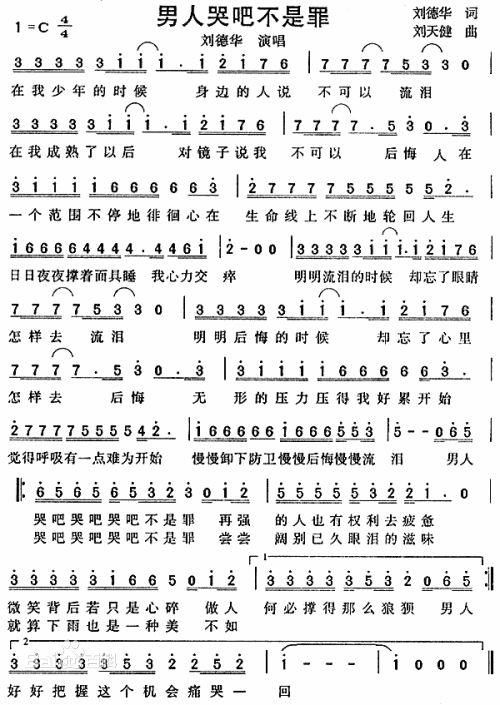 男人哭吧不是罪
刘德华 词
1=C 4/4
刘天健 曲
刘德华 演唱
3 3 3 3 3 3 1 1 1 · 1 2 1 7 6 | 7 7 7 7 5 3 3 0 |
在我少年的时候 身边的人说 不可以 流泪
3 3 3 3 3 3 1 1 1 · 1 2 1 7 6 | 7 7 7 7 · 5 3 0 · 3 |
在我成熟了以后 对镜子说我 不可以 后悔 人在
3 1 1 1 1 6 6 6 6 6 6 3 | 2 7 7 7 7 7 5 5 5 5 5 2 · |
一个范围不停地徘徊心在 生命线上不断地轮回人生
1 6 6 6 6 4 4 4 · 4 4 6 1 | 2 - 0 0 | 3 3 3 3 3 3 1 1 1 · 1 2 1 7 6 |
日日夜夜撑着面具睡 我心力交 瘁 明明流泪的时候 却忘了眼睛
7 7 7 7 5 3 3 0 | 3 3 3 3 3 3 1 1 1 · 1 2 1 7 6 |
怎样去 流泪 明明后悔的时候 却忘了心里
7 7 7 7 · 5 3 0 · 3 | 3 1 1 1 1 6 6 6 6 6 6 3 |
怎样去 后悔 无 形的压力压得我好累开始
2 7 7 7 7 7 5 5 5 5 5 2 · | 1 6 6 6 6 6 1 6 6 6 6 6 1 3 3 3 | 5 - - 0 6 5 |
觉得呼吸有一点难为开始 慢慢卸下防卫慢慢后悔慢慢流 泪 男人
6 5 6 5 6 5 3 2 3 0 1 2 | 5 5 5 5 5 5 3 2 2 1 · 0 |
哭吧哭吧哭吧不是罪 再强 的人也有权利去疲惫
哭吧哭吧哭吧不是罪 尝尝 阔别已久眼泪的滋味
3 3 3 3 3 1 6 6 5 0 1 2 | 3 3 3 3 3 5 3 2 0 6 5
微笑背后若只是心碎 做人 何必撑得那么狼狈 男人
就算下雨也是一种美 不如
2
3 3 3 3 3 5 3 2 2 5 2 | 1 - - - | 1 0 0 0
好好把握这个机会痛哭一 回